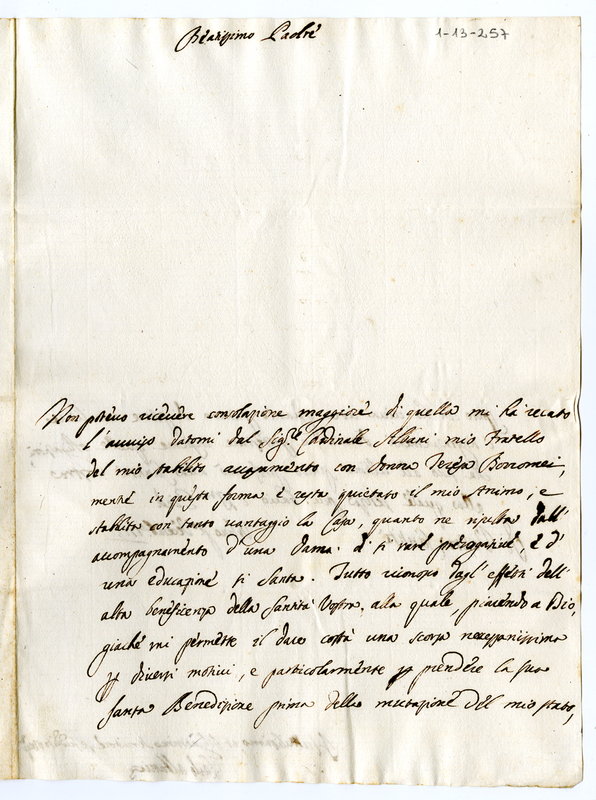 Beatissimo Padre
1-13-257
Non potevo ricevere consolazione maggiore di quella mi hà recato
l'avviso datomi dal Sig.re Cardinale Albani mio Fratello
del mio stabilito con donna Teresa Borromei,
mentre in questa forma è resta quietato il mio Animo, e
stabilita con tanto vantaggio la Casa, quanto ne risulta dall'
accompagnamento d'una Dama di si rare prerogative, e d'
una educazione si Santa. Tutto riconosco dagl'effetti dell'
alta beneficenza della Santità Vostra, alla quale, piacendo a Dio,
giache mi permette il dare costà una scorsa necessarissima
p diversi motivi, e particolarmente p prendere la sua
Santa Benedizione prima della mutazione del mio stato,